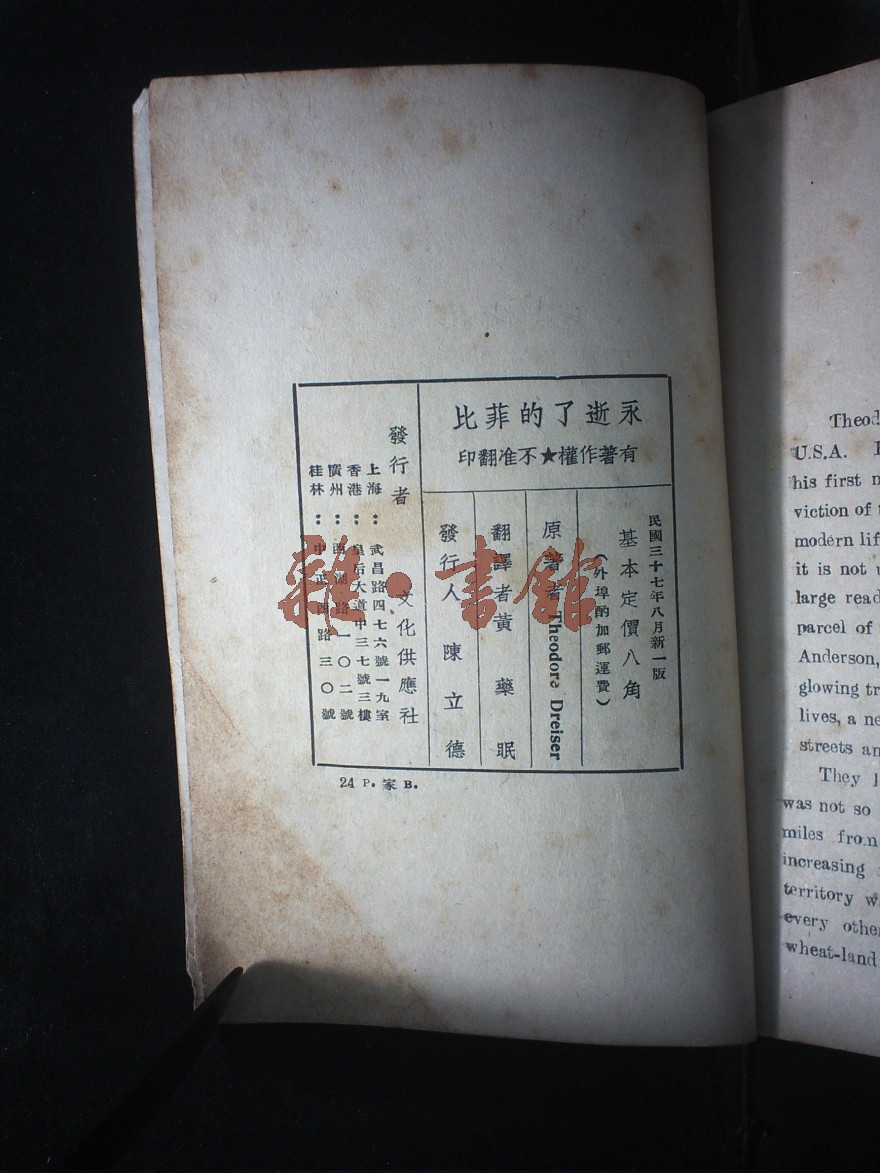 永逝了的菲比
有著作權★不准翻印
民國三十七年八月新一版
基本定價八角
(外埠酌加郵運費)
原著者 Theodore Dreiser
翻譯者 黃藥眠
發行人 陳立德
發行者 文化供應社
上海：武昌路四七六號一九室
香港：皇后大道中三七號三樓
廣州：西湖路一〇二號
桂林：中正西路三〇號
24 P. 家 B.
雜·書館
Theod
U.S.A.
his first
viction of
modern lif
it is not
large read
parcel of
Anderson,
glowing tr
lives, a ne
streets an
They
was not so
miles from
increasing
territory w
every othe
wheat-land